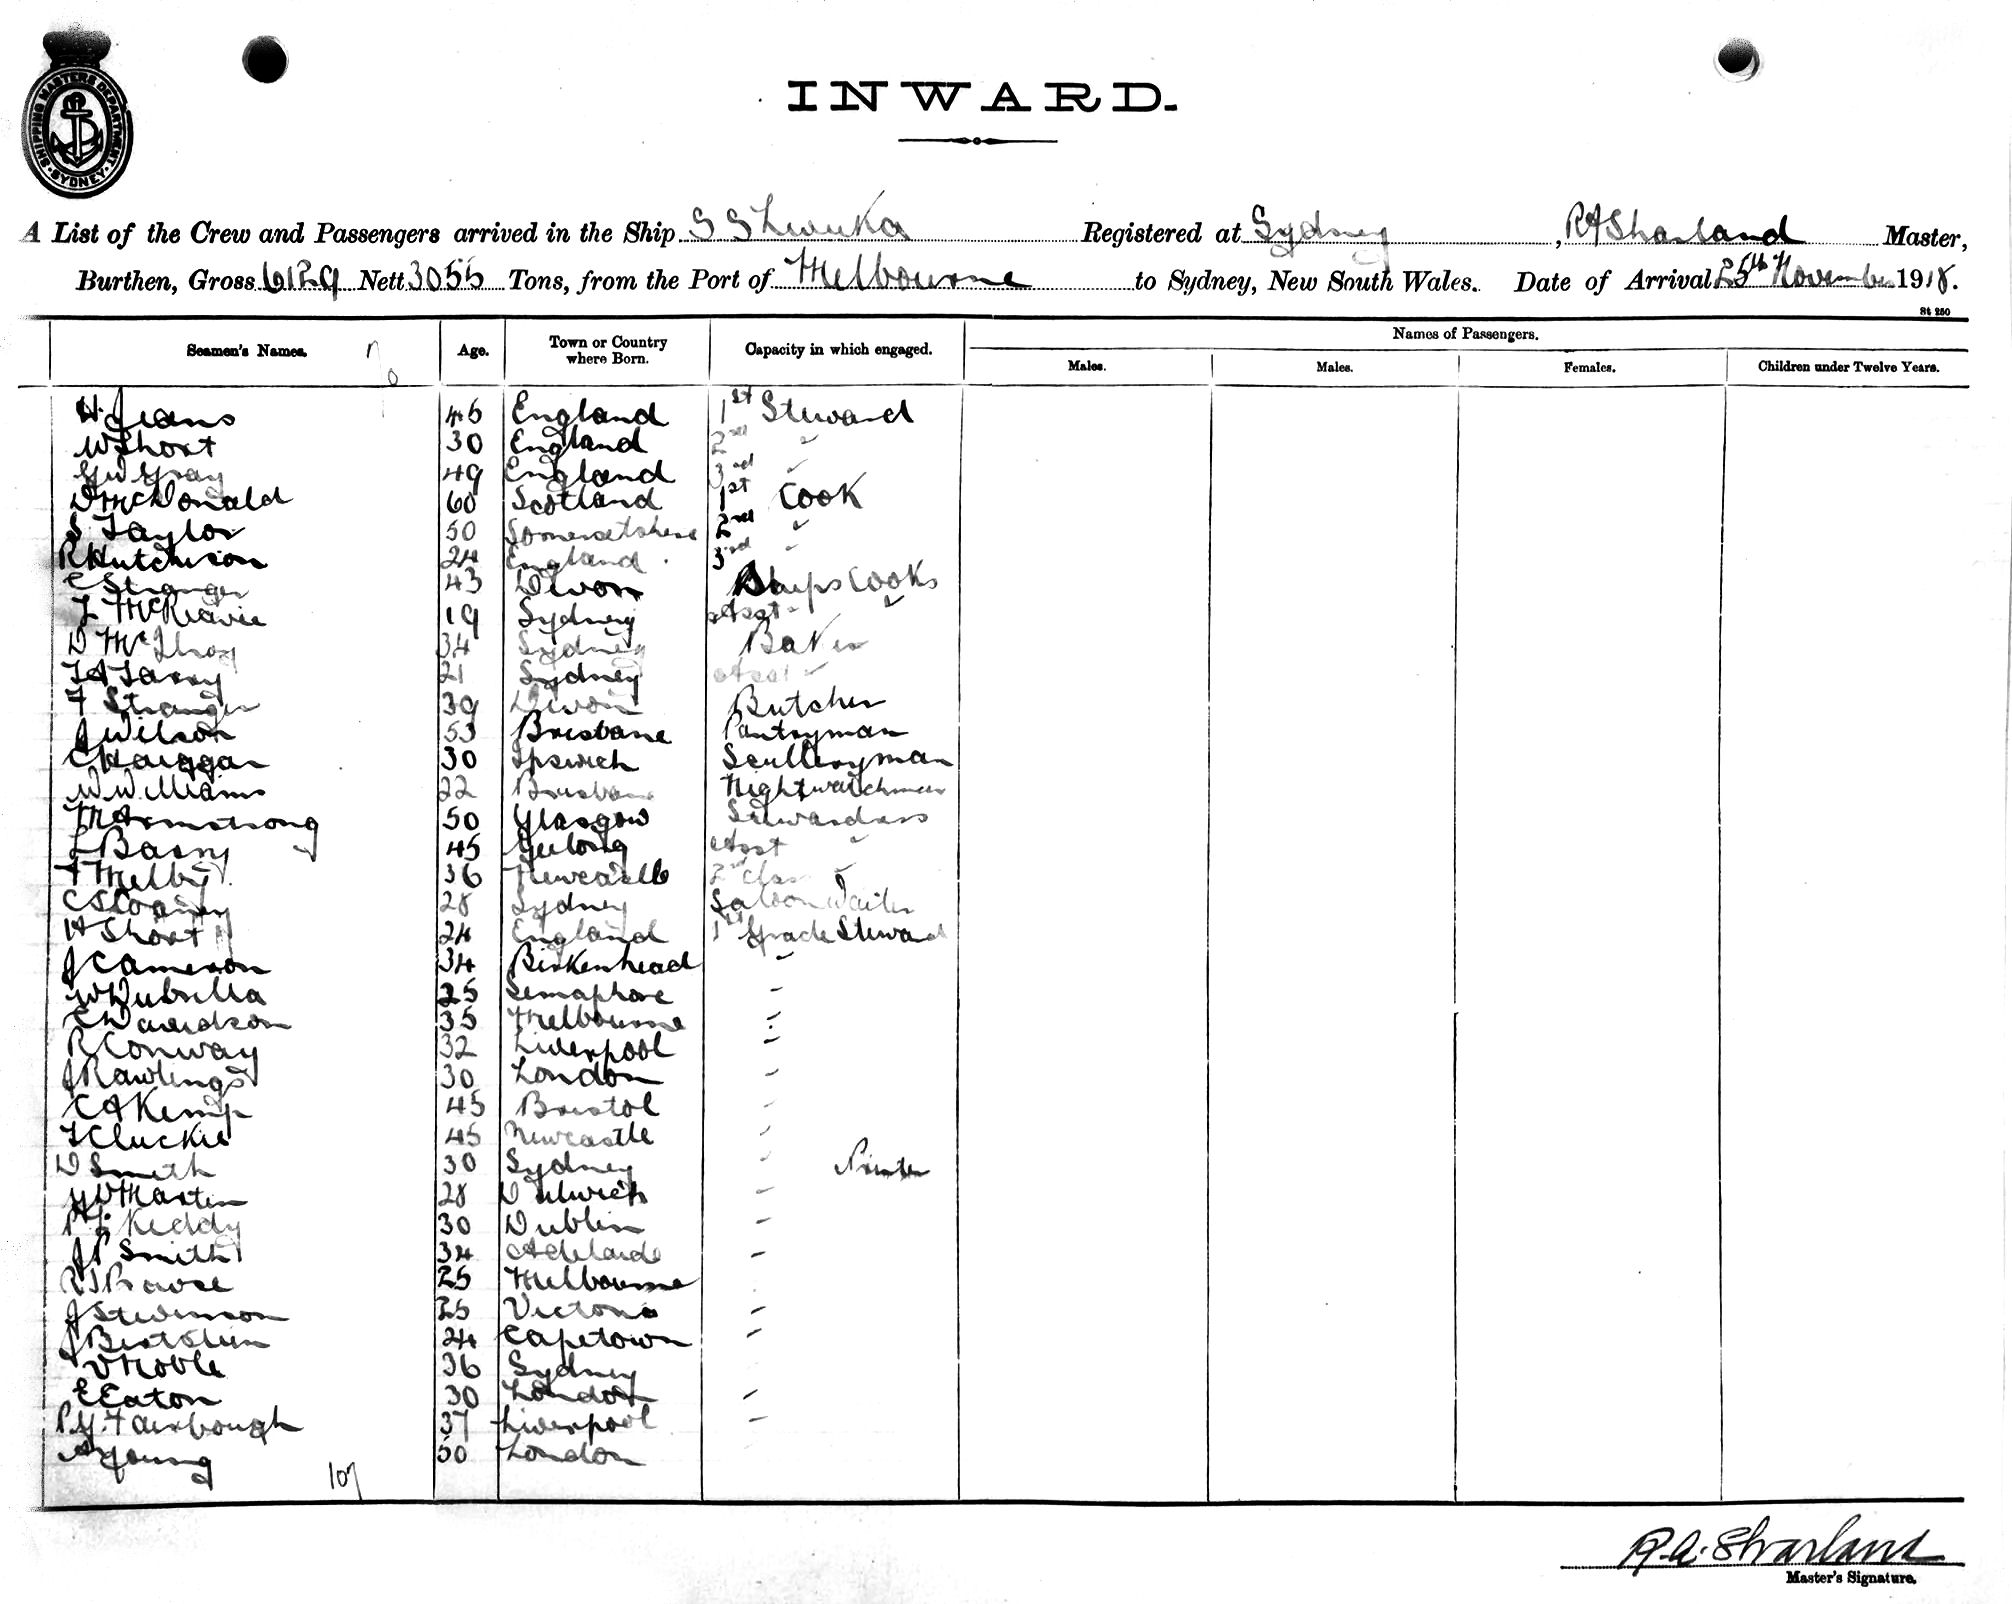 SHIPPING MASTERS DEPARTMENT · SYDNEY ·
INWARD.
A List of the Crew and Passengers arrived in the Ship S S Levuka Registered at Sydney, R A Sharland Master,
Burthen, Gross 6129 Nett 3055 Tons, from the Port of Melbourne to Sydney, New South Wales. Date of Arrival 25th November 1918.
St 250
Seamen's Names. Age. Town or Country where Born. Capacity in which engaged. Names of Passengers.
Males. Males. Females. Children under Twelve Years.
H. Jeans 46 England 1st Steward
W Short 30 England 2nd "
G W Gray 49 England 3rd "
D McDonald 60 Scotland 1st Cook
S Taylor 50 Somersetshire 2nd "
R Hutchison 24 England 3rd "
C Stranger 43 Devon Ships Cooks
19 Sydney Asst "
D McIlroy 34 Sydney Baker
21 Sydney Asst "
F Stranger 39 Devon Butcher
J Wilson 53 Brisbane Pantryman
C Haiggan 30 Ipswich Sculleryman
W Williams 22 Brisbane Nightwatchman
M Armstrong 50 Glasgow Stewardess
L Barry 45 Geelong Asst "
F Melby 36 Newcastle 2nd class "
28 Sydney Saloon Waiter
H Short 24 England 1st Grade Steward
J Cameron 34 Birkenhead "
W Dubrella 25 Semaphore "
C Davidson 35 Melbourne "
R Conway 32 Liverpool "
J Rawlings 30 London "
C A Kemp 45 Bristol "
T Cluckie 45 Newcastle "
D Smith 30 Sydney " Printer
28 Dulwich "
Keddy 30 Dublin "
J P Smith 34 Adelaide "
R J Prowse 25 Melbourne "
J Stevenson 25 Victoria "
J Bertolin 24 Capetown "
V Noble 36 Sydney
E Eaton 30 London "
P. G. Fairbough 37 Liverpool "
A Young 50 London
107
R. A. Sharland
Master's Signature.